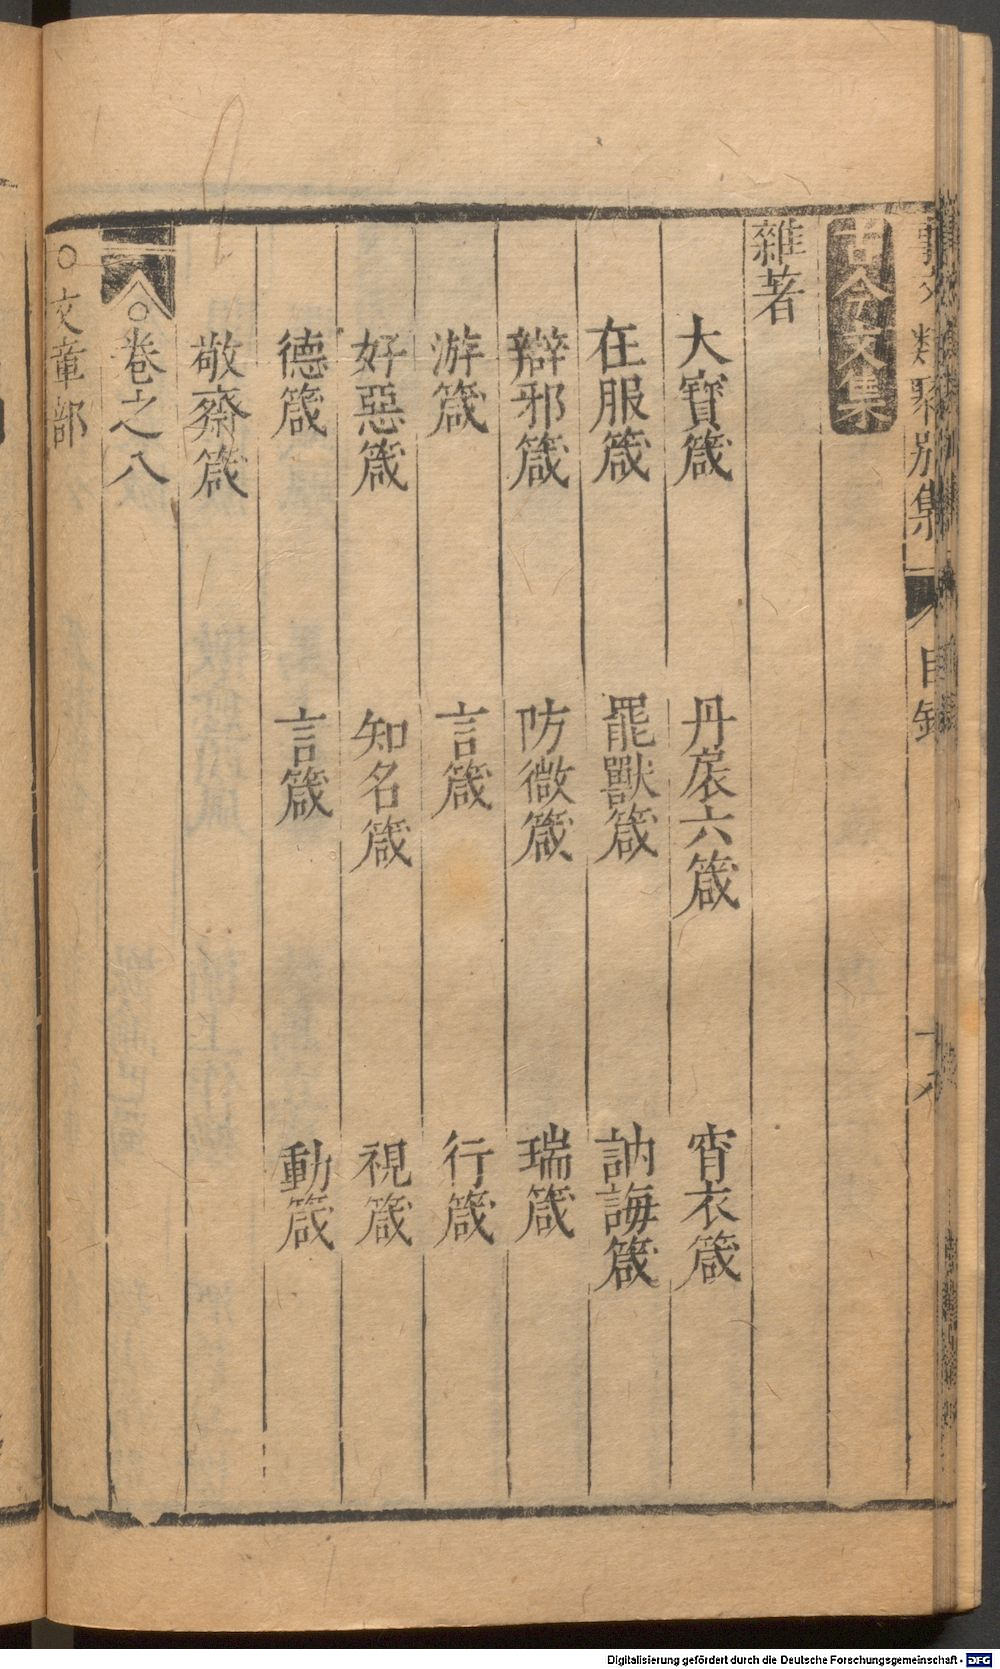 類聚別集
目錄
十八
古今文集
雜著
大寶箴 丹扆六箴 宵衣箴
在服箴 罷獻箴 訥誨箴
辯邪箴 防微箴 瑞箴
游箴 言箴 行箴
好惡箴 知名箴 視箴
德箴 言箴 動箴
敬齋箴
○卷之八
○文章部
Digitalisierung gefördert durch die Deutsche Forschungsgemeinschaft - DFG